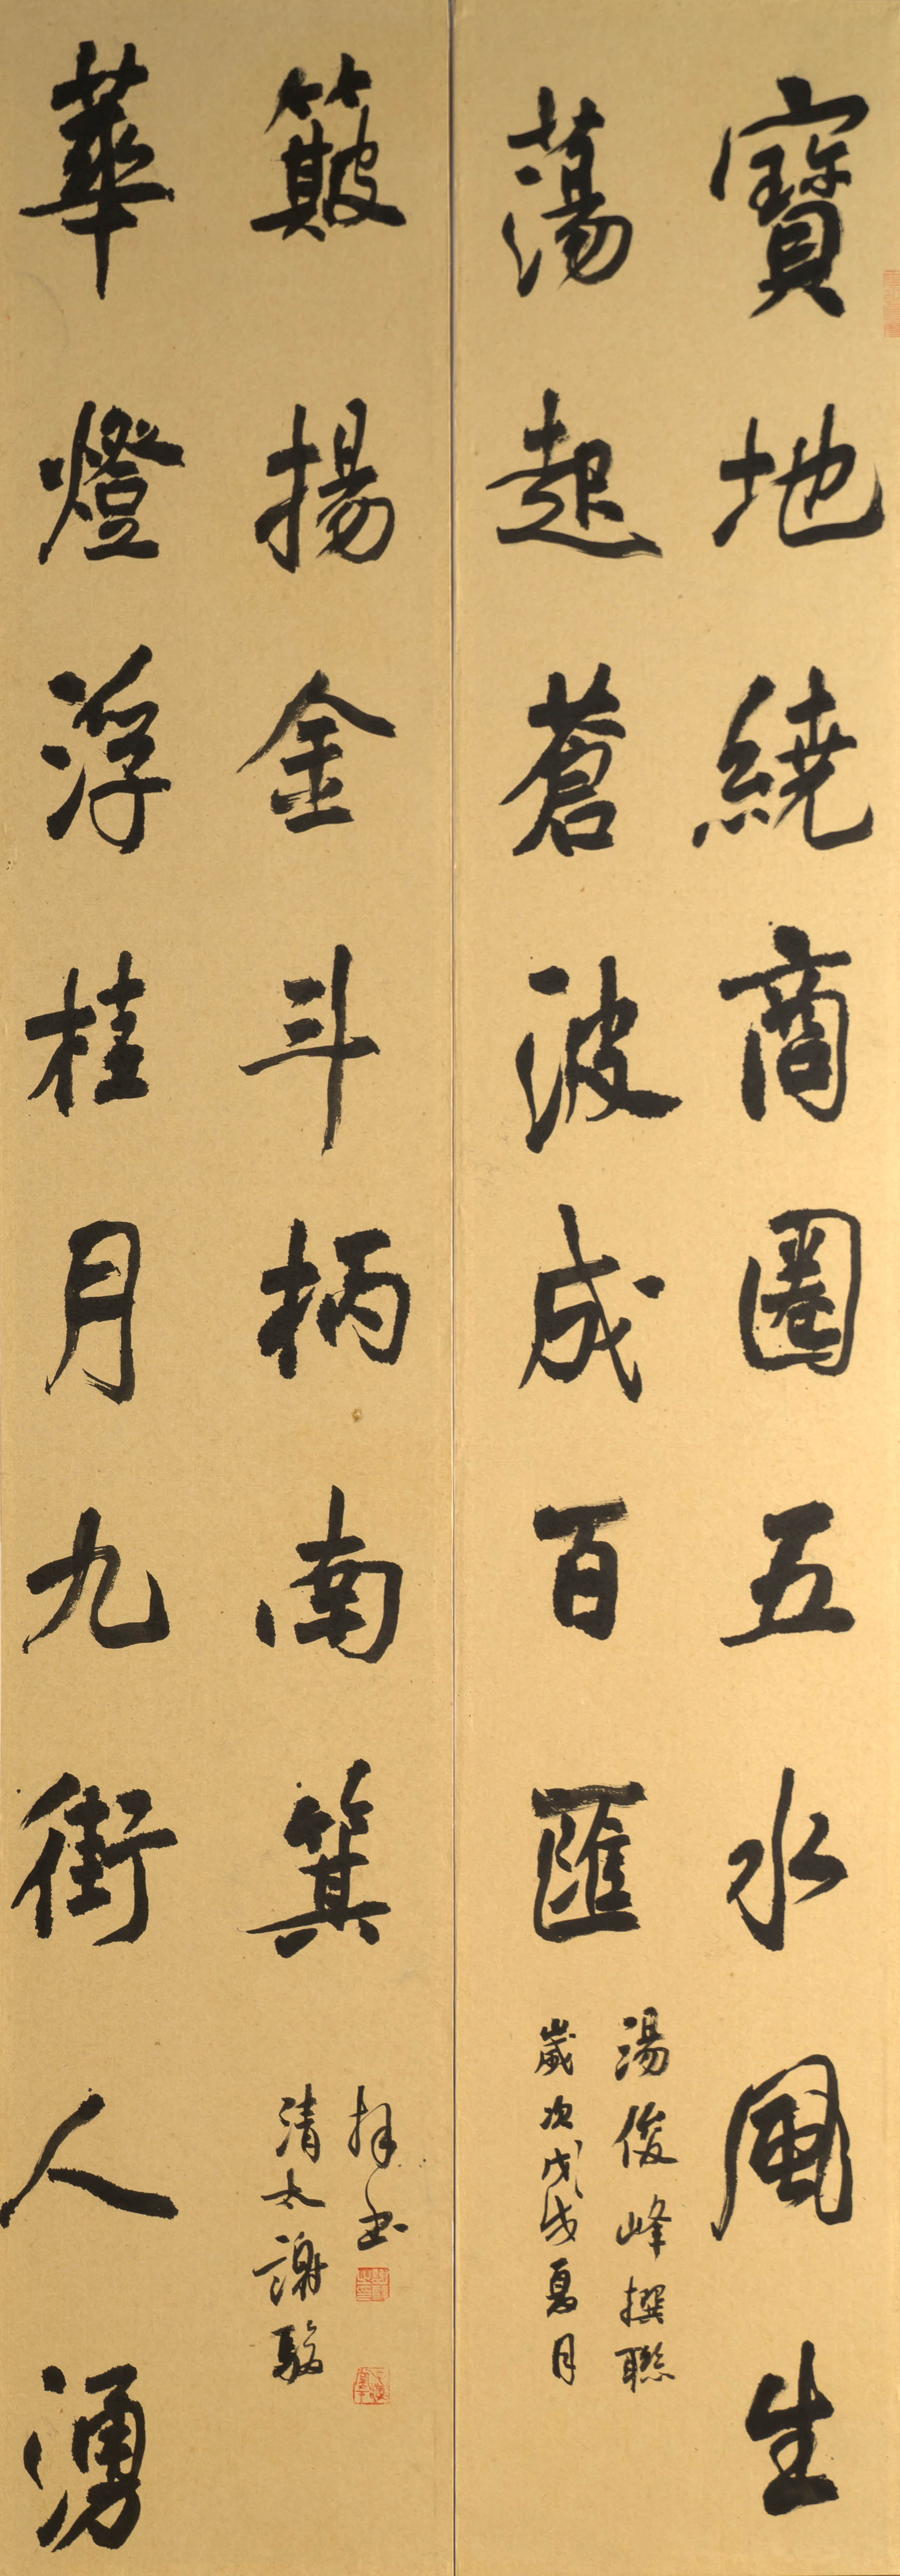 寶地繞商圈五水風生
蕩起蒼波成百匯
湯俊峰撰聯
歲次戊戌夏月
華燈浮桂月九街人湧
簸揚金斗柄南箕
清太謝駿
拜書